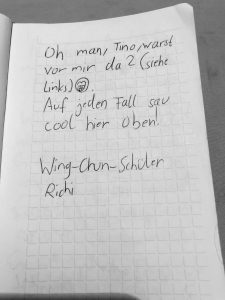 Oh man, Tino, warst
vor mir da? (siehe
Links) 😁.
Auf jeden Fall sau
cool hier oben!
Wing-Chun-Schüler
Richi